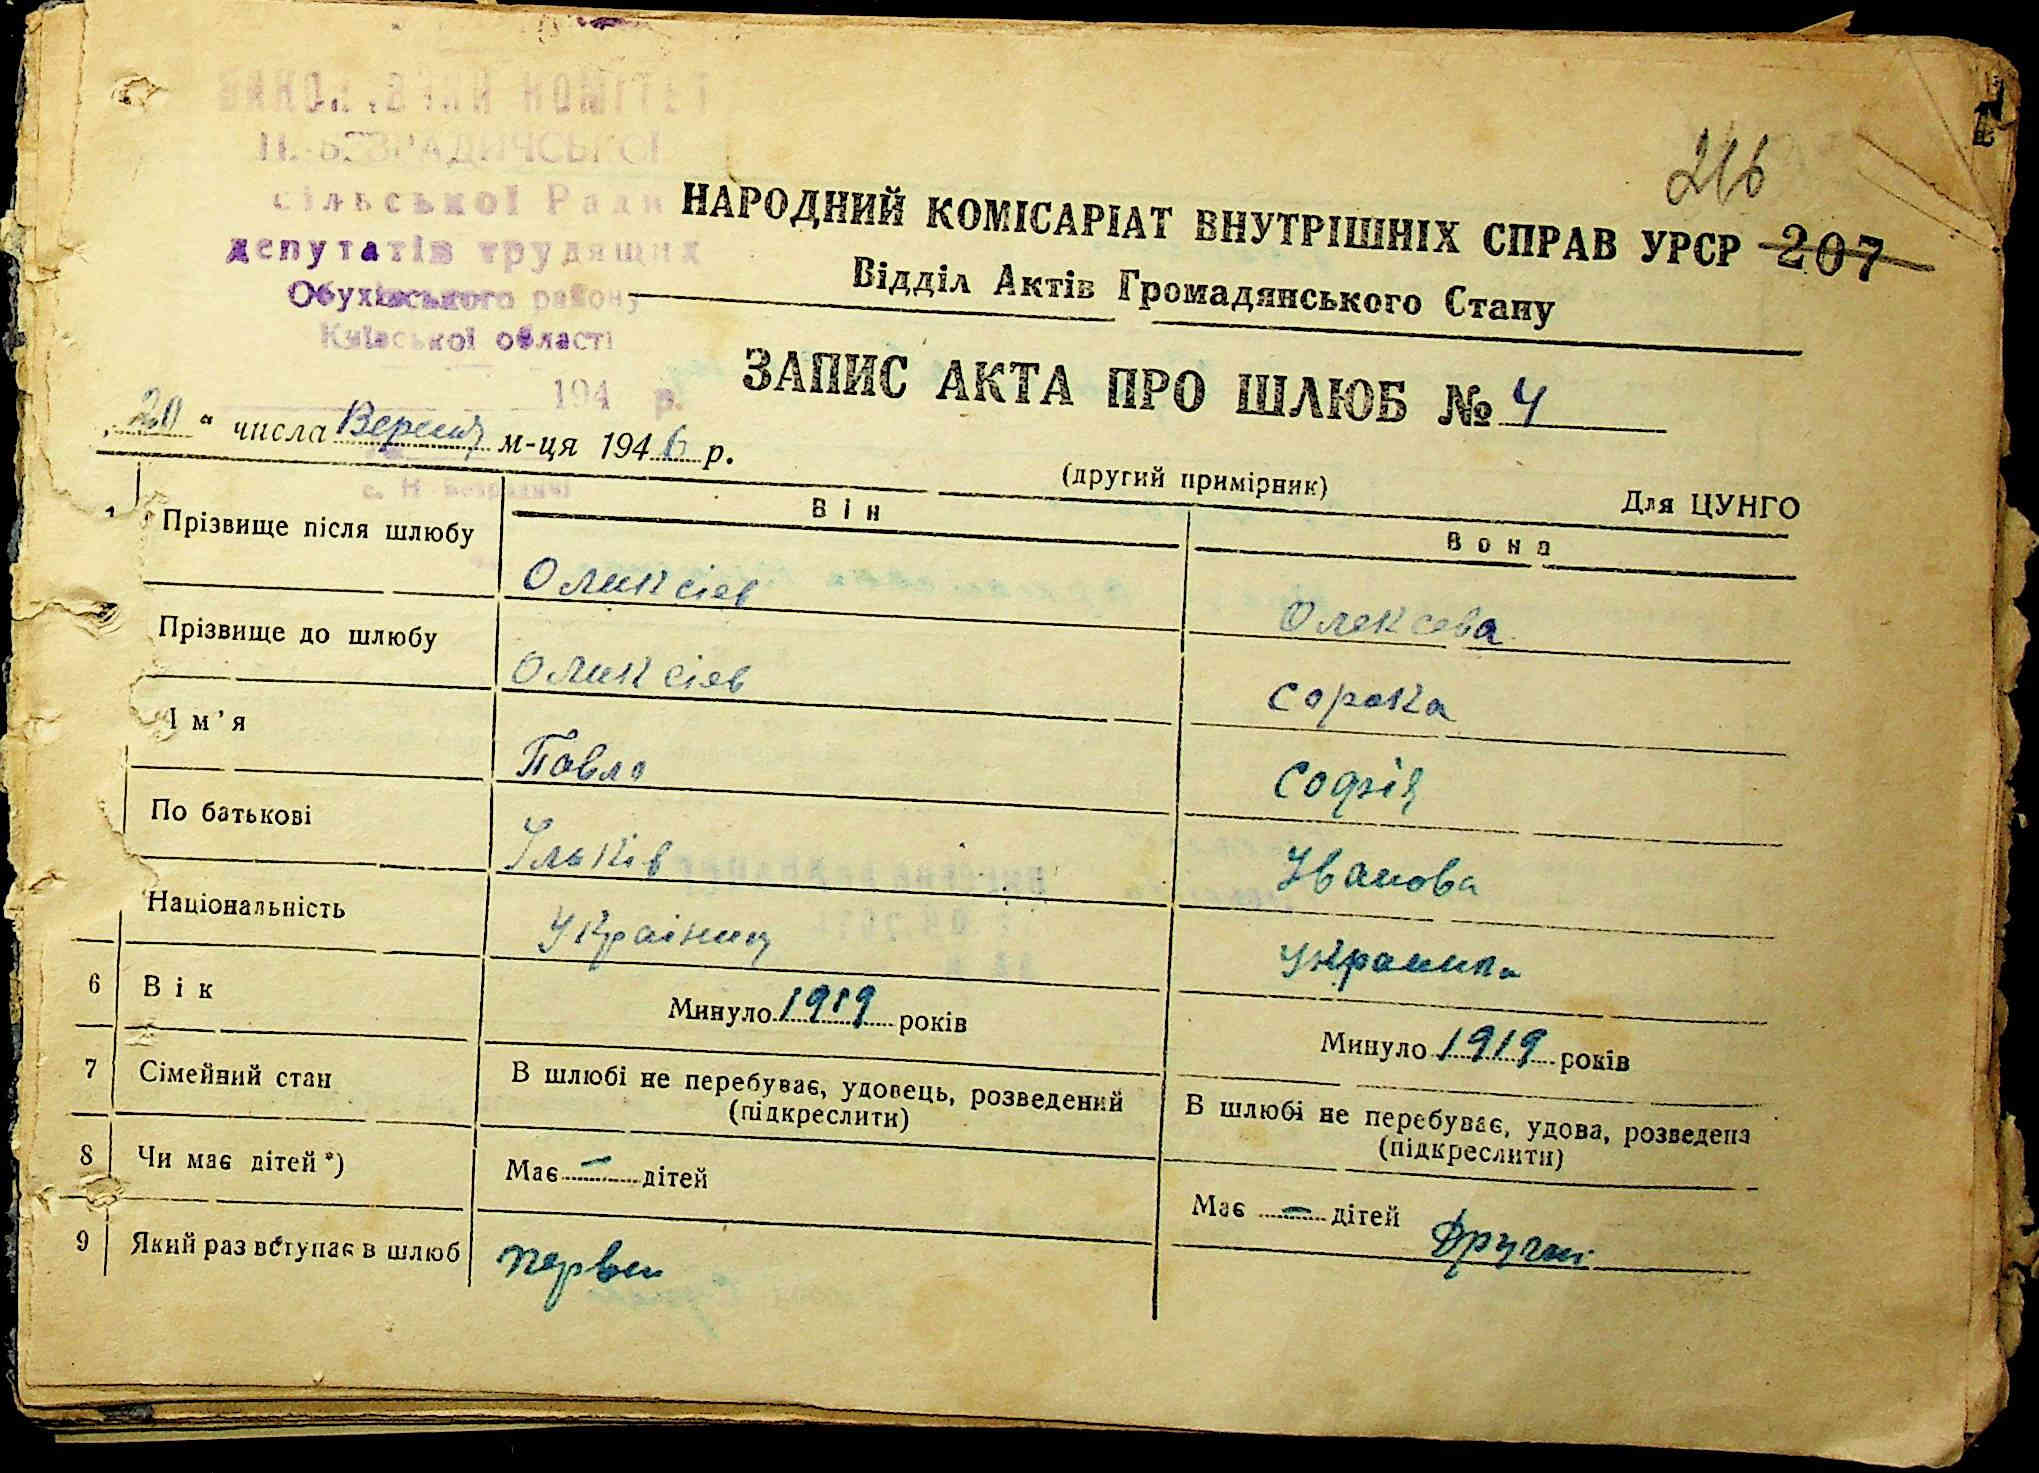 ВИКОНАВЧИЙ КОМІТЕТ
Н.-БЕЗРАДИЧСЬКОЇ
сільської Ради
депутатів трудящих
Обухівського району
Київської області
194 р.
с. Н Безрадичі
216
НАРОДНИЙ КОМІСАРІАТ ВНУТРІШНІХ СПРАВ УРСР 207
Відділ Актів Громадянського Стану
ЗАПИС АКТА ПРО ШЛЮБ № 4
„20“ числа Вересня м-ця 1946 р.
(другий примірник)
Для ЦУНГО
Він Вона
1 Прізвище після шлюбу Оликсіев Олексева
Прізвище до шлюбу Оликсіев Сорока
Ім'я Павло Софія
По батькові Ільків Іванова
Національність Українец Украинка
6 Вік Минуло 1919 років Минуло 1919 років
7 Сімейний стан В шлюбі не перебуває, удовець, розведений В шлюбі не перебуває, удова, розведена
(підкреслити) (підкреслити)
8 Чи має дітей*) Має – дітей Має – дітей
9 Який раз вступає в шлюб первий Другий